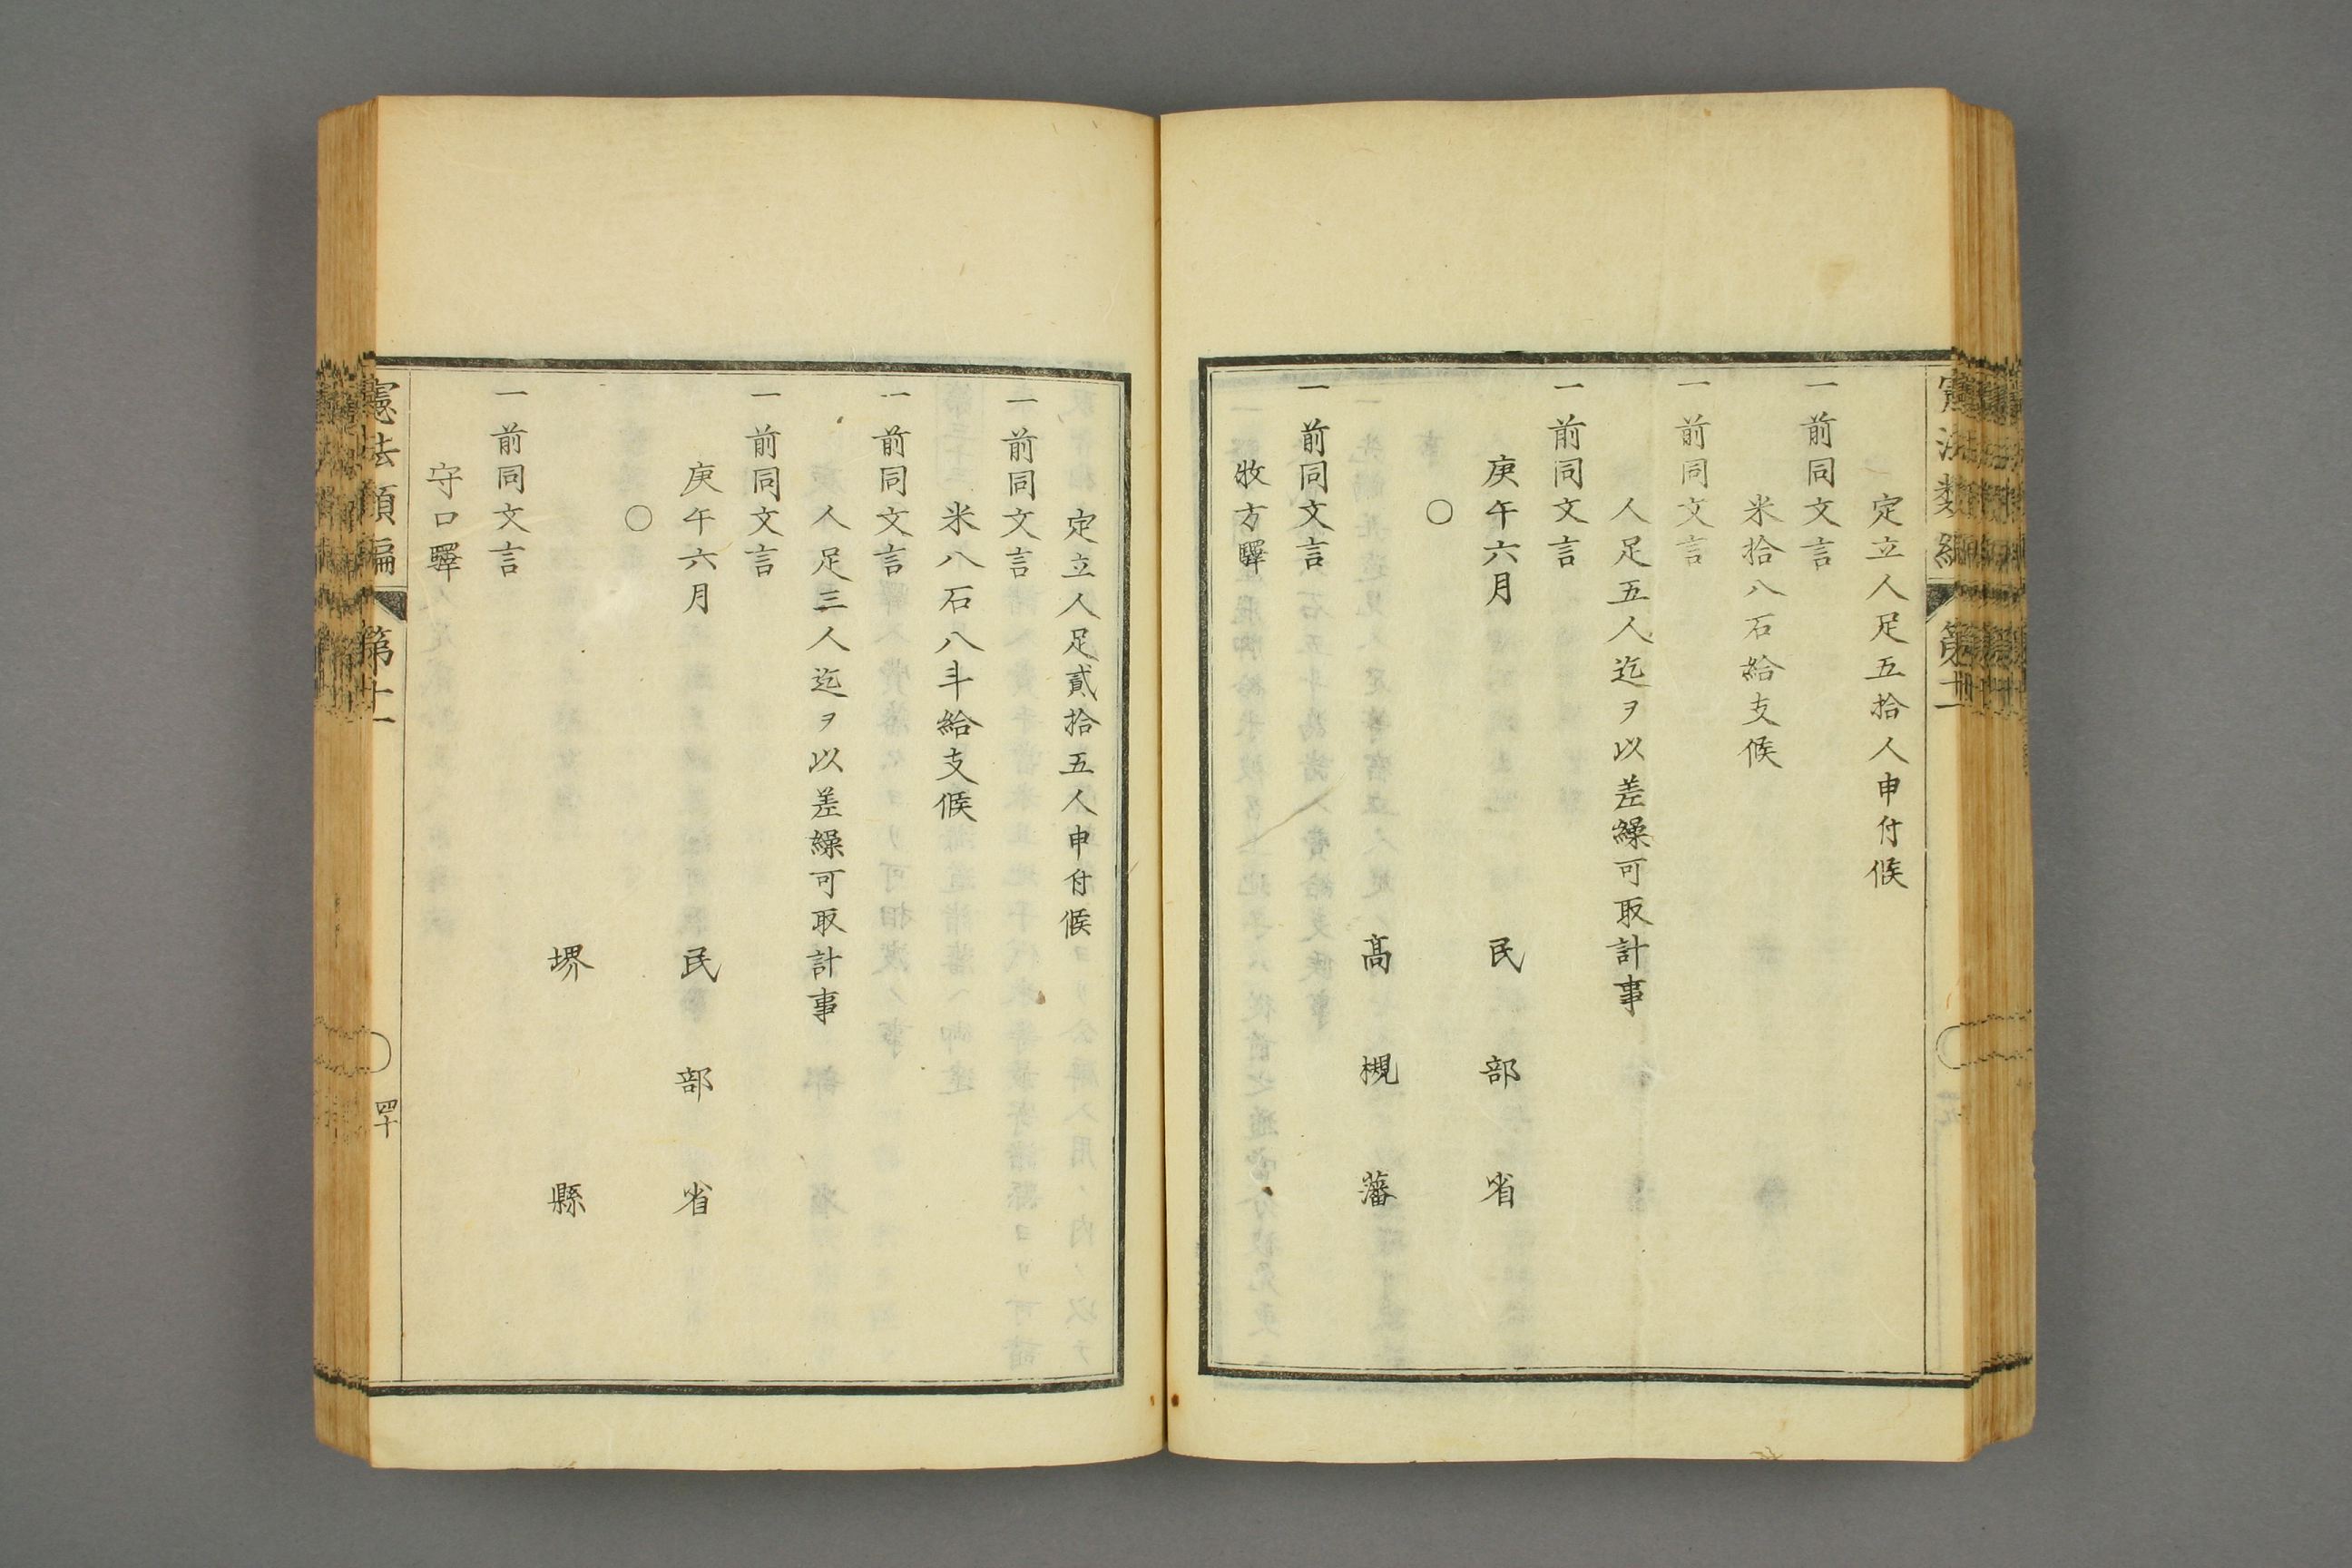 憲法類編 第十一
定立人足五拾人申付候
一前同文言
米拾八石給支候
一前同文言
人足五人迄ヲ以差繰可取計事
一前同文言
庚午六月 民部省
○
高槻藩
一前同文言
牧方驛
定立人足貳拾五人申付候
一前同文言
米八石八斗給支候
一前同文言
人足三人迄ヲ以差繰可取計事
一前同文言
庚午六月 民部省
○
堺縣
一前同文言
守口驛
憲法類編 第十一 四十